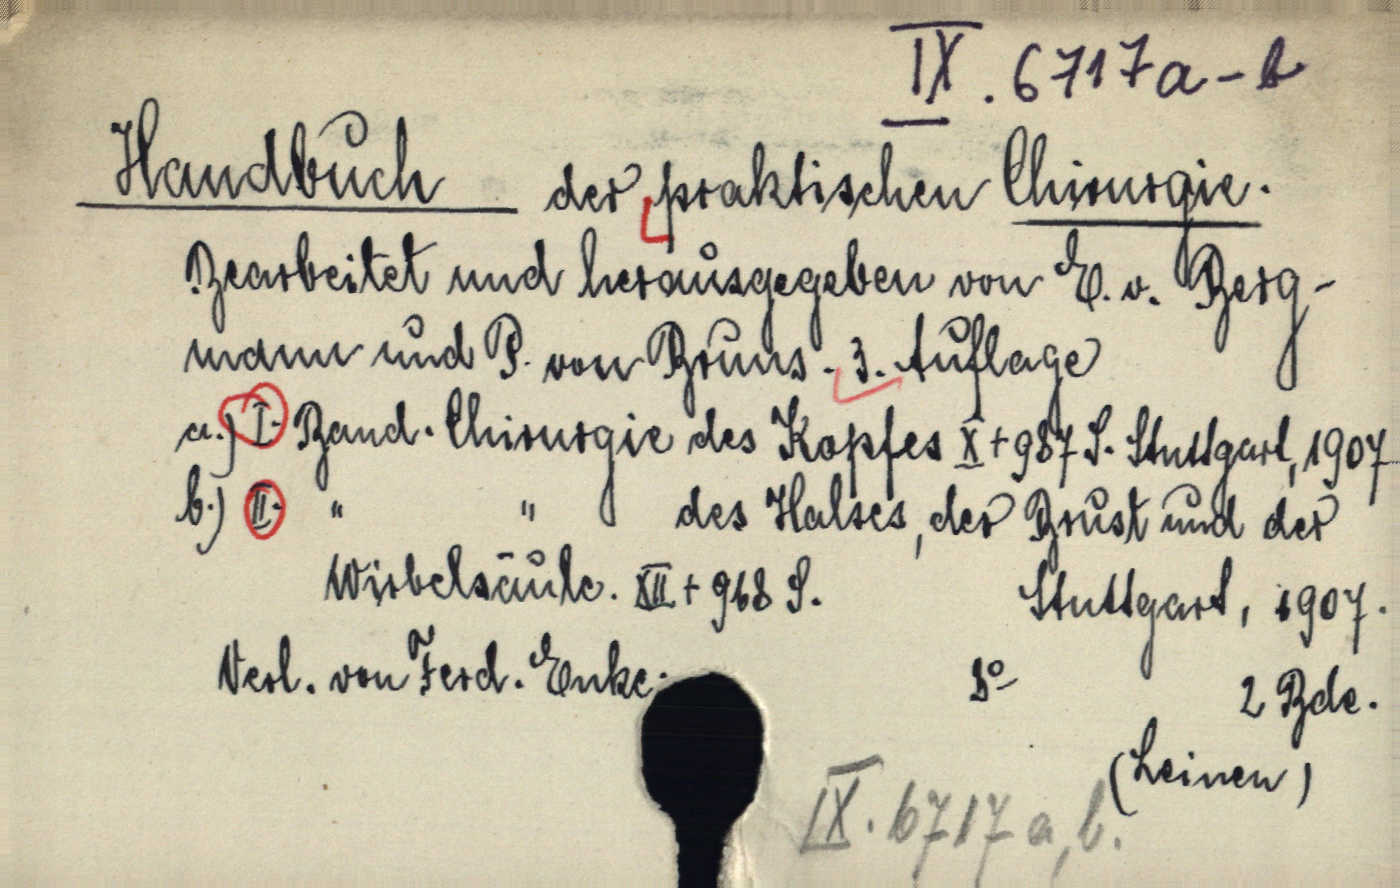 IX. 6717a-b
Handbuch der praktischen Chirurgie.
Bearbeitet und herausgegeben von E. v. Berg-
mann und P. von Bruns. 3. Auflage
a.) I. Band. Chirurgie des Kopfes X + 987 S. Stuttgart, 1907
b.) II. " " des Halses, der Brust und der
Wirbelsäule. XII + 968 S. Stuttgart, 1907.
Verl. von Ferd. Enke. 8° 2 Bde.
(Leinen)
IX. 6717 a, b.